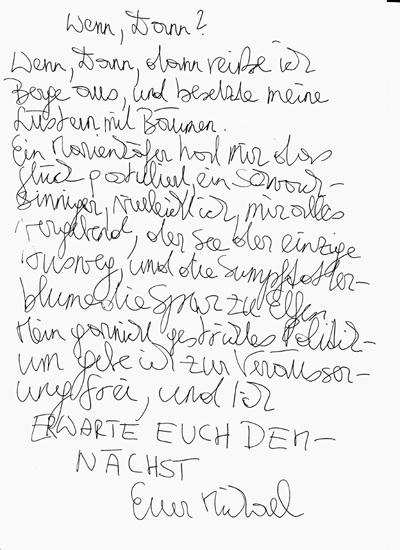 Wenn, Dann?
Wenn, Dann, dann reiße ich
Berge aus, und besetzte meine
mit Bäumen.
Ein Marienkäfer hat mir das
Glück postuliert, ein Schwach-
sinniger, vielleicht ich, mir alles
vergebend, der See der einzige
Ausweg, und die Sumpfdotter-
blume die Spur zu Elfen
Mein garnicht Politik-
um gebe ich zur Veräusser-
ung frei, und Ich
ERWARTE EUCH DEM-
NÄCHST
Euer Michael